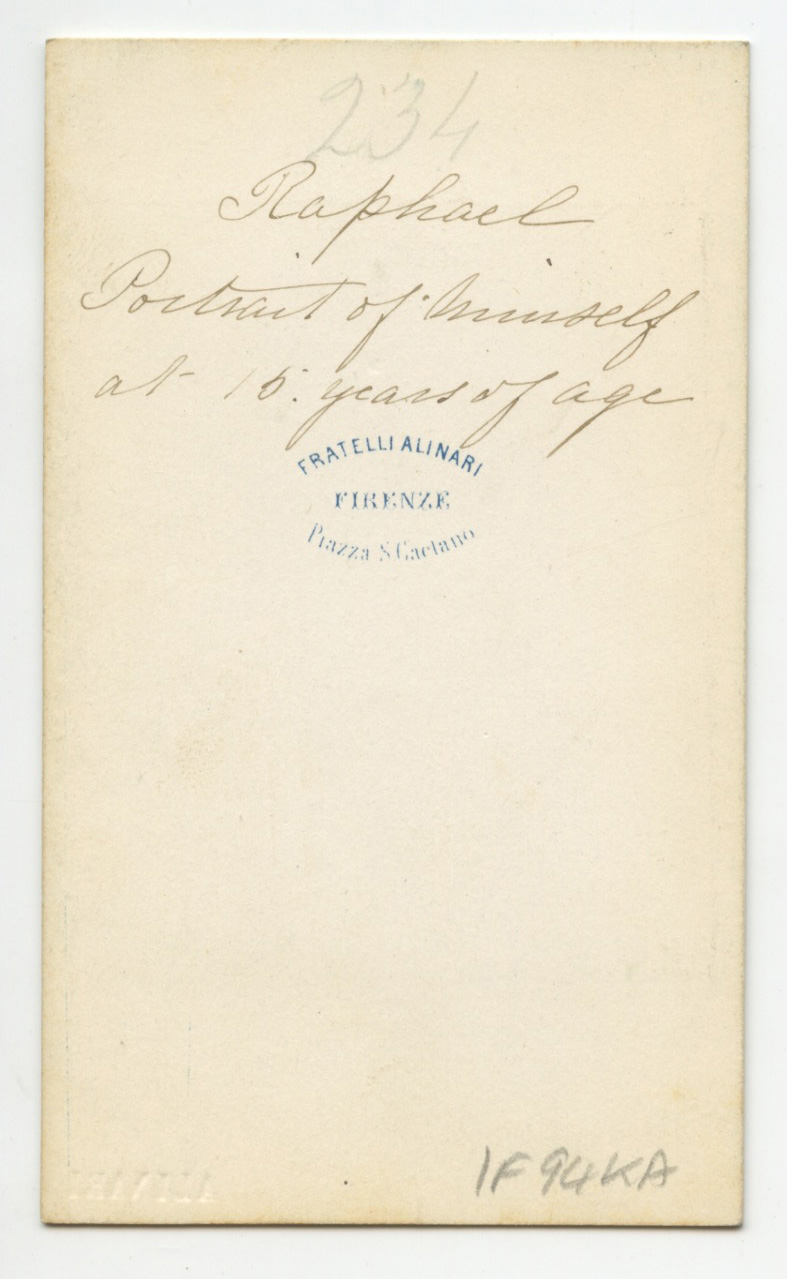 234
Raphael
Portrait of himself
at 15 years of age
FRATELLI ALINARI
FIRENZE
Piazza S. Gaetano
1F94KA
ALINARI